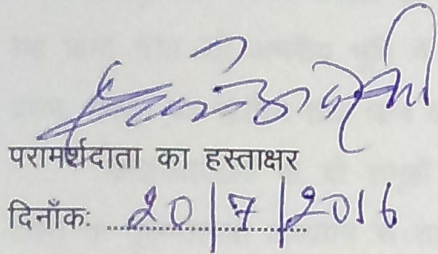 परामर्शदाता का हस्ताक्षर
दिनाँक: 20/7/2016